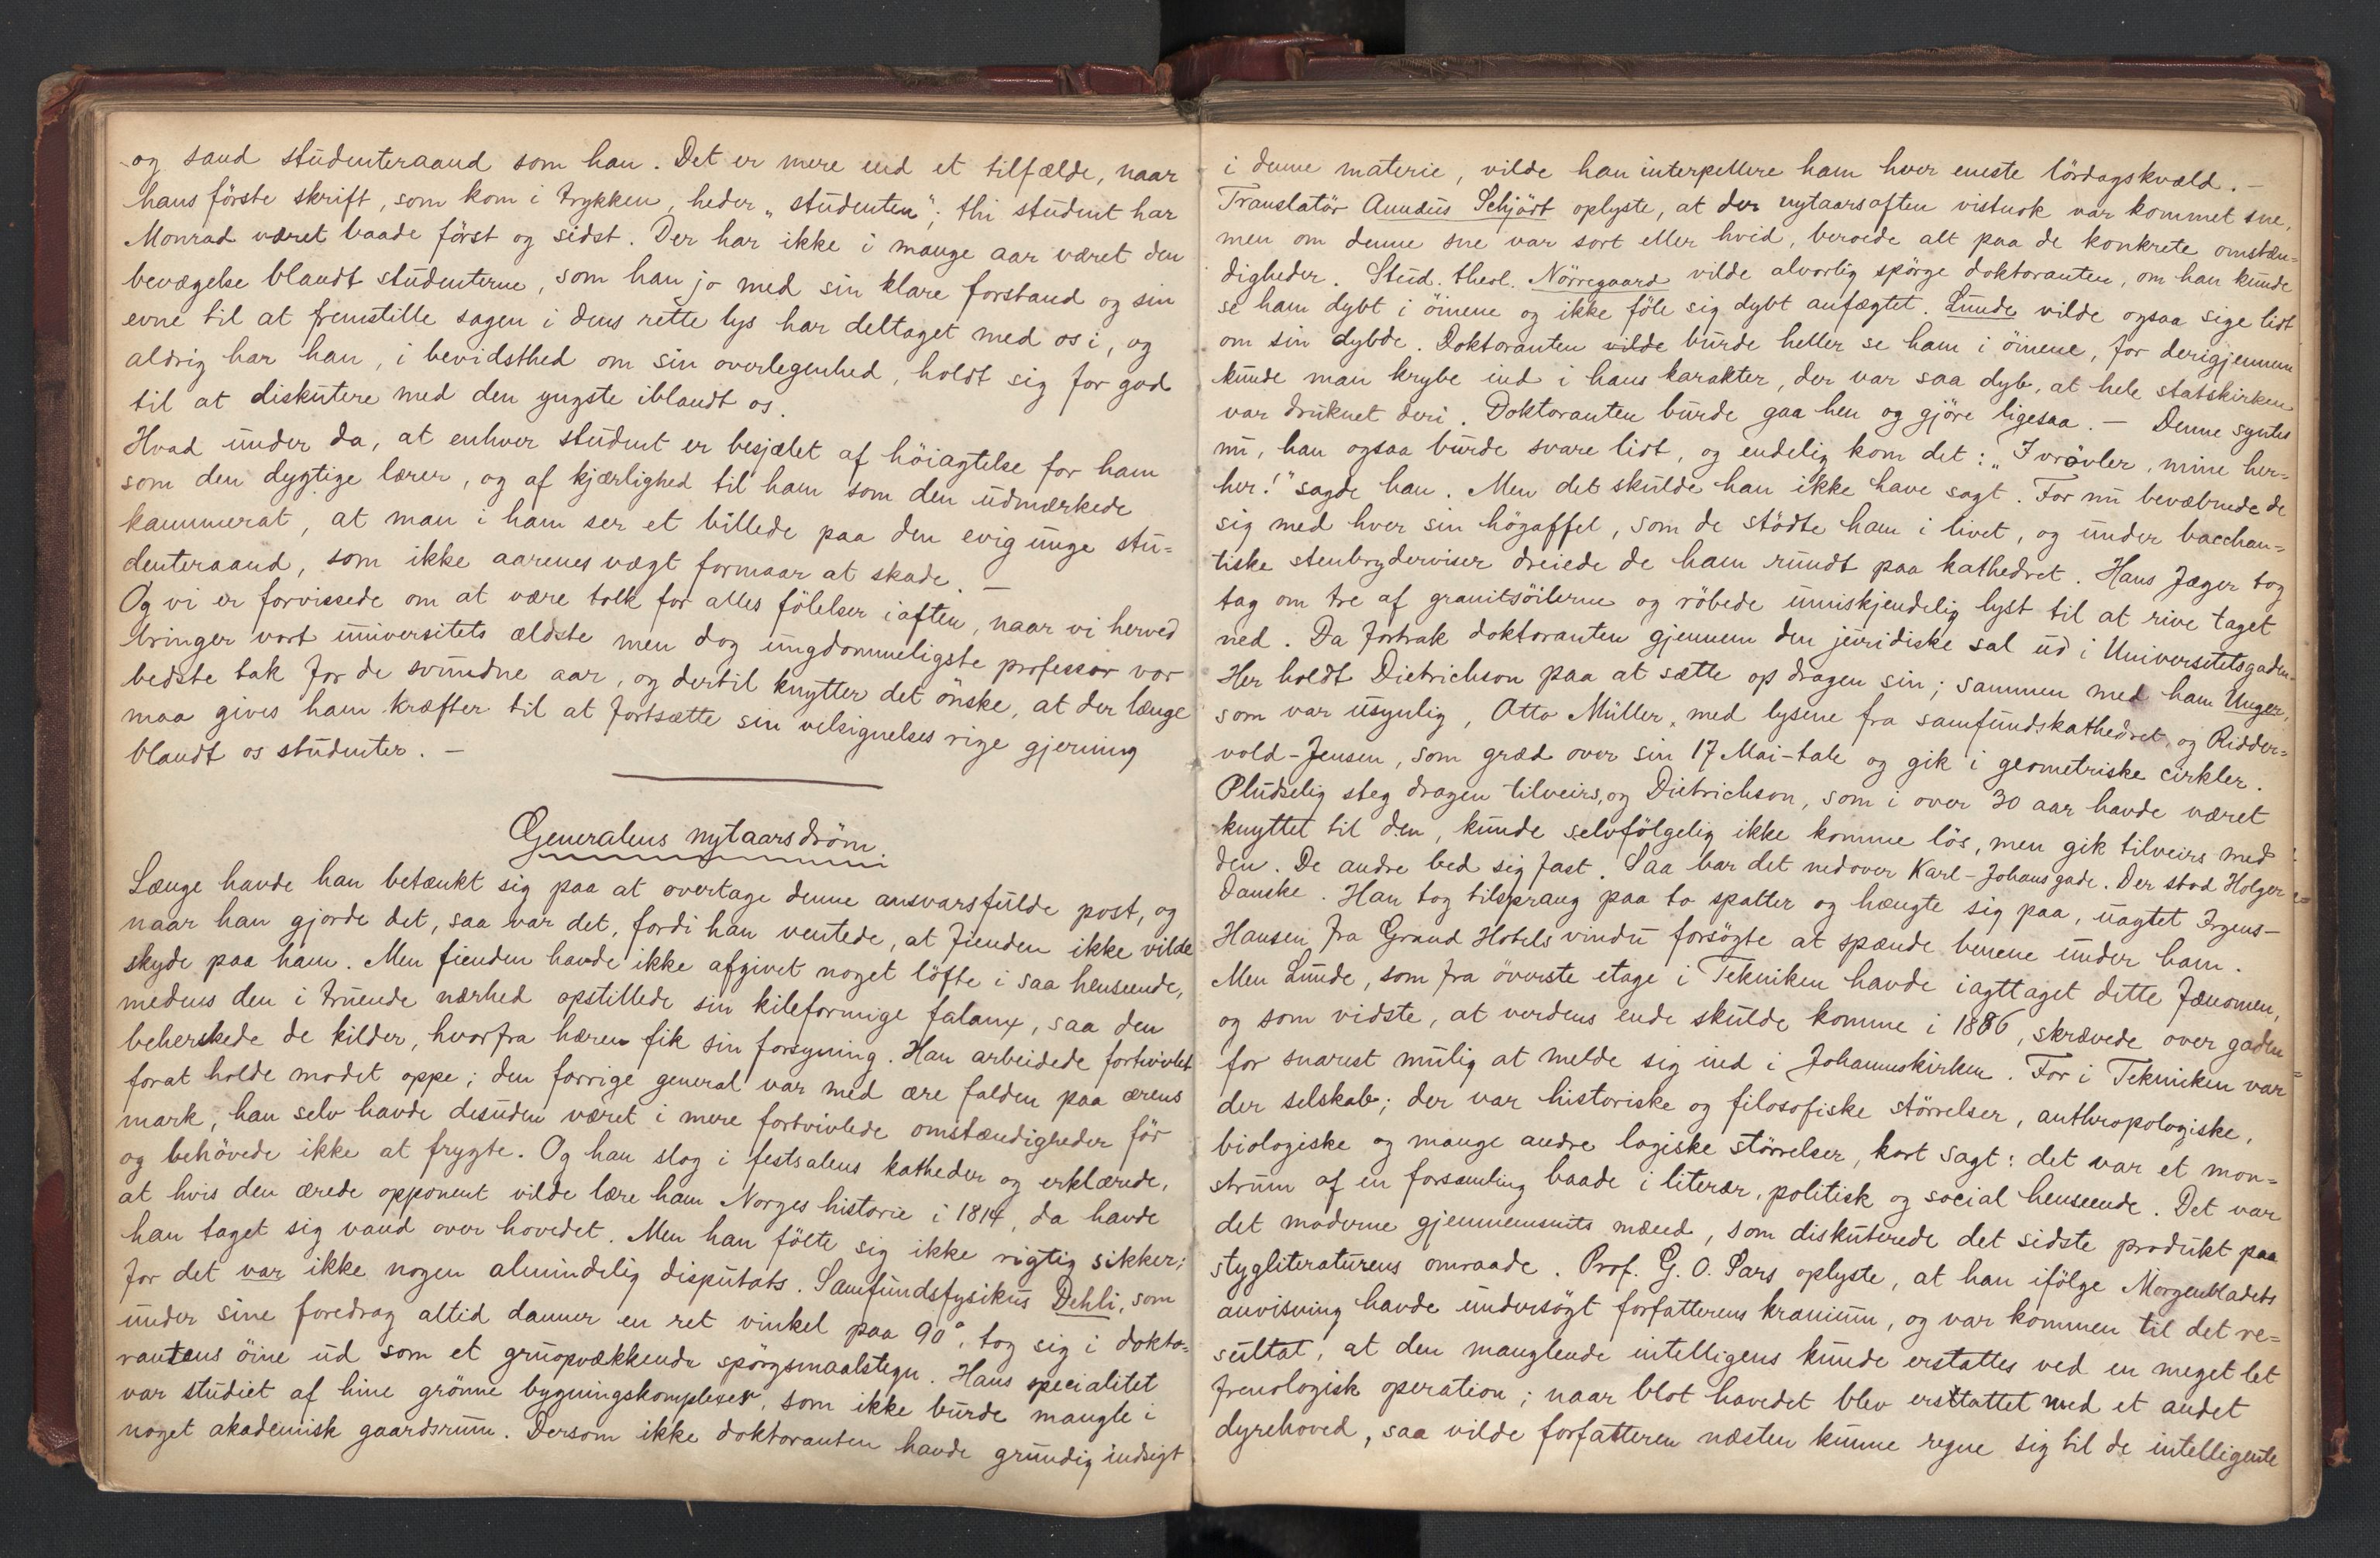 og sand studenteraand som han. Det er mere end et tilfælde, naar
hans förste skrift, som kom i trykken, heder „studenten”; thi student har
Monrad været baade först og sidst. Der har ikke i mange aar været den
bevægelse blandt studenterne, som han jo med sin klare forstand og sin
evne til at fremstille sagen i dens rette lys har deltaget med os i, og
aldrig har han, i bevidsthed om sin overlegenhed, holdt sig for god
til at diskutere med den yngste iblandt os.
Hvad under da, at enhver student er besjælet af höiagtelse for ham
som den dygtige lærer, og af kjærlighed til ham som den udmærkede
kammerat, at man i ham ser et billede paa den evig unge stu=
denteraand, som ikke aarenes vægt formaar at skade. —
Og vi er forvissede om at være tolk for alles fölelser iaften, naar vi herved
bringer vort universitets ældste men dog ungdommeligste professor vor
bedste tak for de svundne aar, og dertil knytter det önske, at der længe
maa gives ham kræfter til at fortsætte sin velsignelses rige gjerning
blandt os studenter. —
Generalens nytaarsdröm.
Længe havde han betænkt sig paa at overtage denne ansvarsfulde post, og
naar han gjorde det, saa var det, fordi han ventede, at fienden ikke vilde
skyde paa ham. Men fienden havde ikke afgivet noget löfte i saa henseende,
medens den i truende nærhed opstillede sin kileformige falanx, saa den
beherskede de kilder, hvorfra hæren fik sin forsyning. Han arbeidede fortvivlet
forat holde modet oppe; den forrige general var med ære falden paa ærens
mark, han selv havde desuden været i mere fortvivlede omstændigheder för
og behövede ikke at frygte. Og han slog i festsalens katheder og erklærede,
at hvis den ærede opponent vilde lære ham Norges historie i 1814, da havde
han taget sig vand over hovedet. Men han fölte sig ikke rigtig sikker;
for det var ikke nogen almindelig disputats. Samfundsfysikus Dehli, som
under sine foredrag altid danner en ret vinkel paa 90°, tog sig i dokto=
rantens öine ud som et gruopvækkende spörgsmaalstegn. Hans specialitet
var studiet af hine grönne bygningskomplexer, som ikke burde mangle i
noget akademisk gaardsrum. Dersom ikke doktoranten havde grundig indsigt
i denne materie, vilde han interpellere ham hver eneste lördagskvæld. —
Translatör Annæus Schjödt oplyste, at der nytaarsaften vistnok var kommet sne,
men om denne sne var sort eller hvid, beroede alt paa de konkrete omstæn=
digheder. Stud. theol. Nörregaard vilde alvorlig spörge doktoranten, om han kunde
se ham dybt i öinene og ikke föle sig dybt anfægtet. Lunde vilde ogsaa sige lidt
om sin dybde. Doktoranten vilde burde heller se ham i öinene, for derigjennem
kunde man krybe ind i hans karakter, der var saa dyb, at hele statskirken
var druknet deri. Doktoranten burde gaa hen og gjöre ligesaa. — Denne syntes
nu, han ogsaa burde svare lidt, og endelig kom det: „I vrövler, mine her=
rer!” sagde han. Men det skulde han ikke have sagt. For nu bevæbnede de
sig med hver sin högaffel, som de stödte ham i livet, og under bacchan=
tiske stenbryderviser dreiede de ham rundt paa kathedret. Hans Jæger tog
tag om tre af granitsöilerne og röbede umiskjendelig lyst til at rive taget
ned. Da fortrak doktoranten gjennem den juridiske sal ud i Universitetsgaden.
Her holdt Dietrichson paa at sætte op dragen sin; sammen med ham Unger,
som var usynlig, Otto Müller, med lysene fra samfundskathedret, og Ridder=
vold-Jensen, som græd over sin 17 Mai-tale og gik i geometriske cirkler.
Pludselig steg dragen tilveirs, og Dietrichson, som i over 30 aar havde været
knyttet til den, kunde selvfölgelig ikke komme lös, men gik tilveirs med
den. De andre bed sig fast. Saa bar det nedover Karl-Johans gade. Der stod Holger
Danske. Han tog tilsprang paa to spatter og hængte sig paa, uagtet Irgens-
Hansen fra Grand Hotels vindu forsögte at spænde benene under ham.
Men Lunde, som fra överste etage i Tekniken havde iagttaget dette fænomen,
og som vidste, at verdens ende skulde komme i 1886, skrævede over gaden
for snarest mulig at melde sig ind i Johanneskirken. For i Tekniken var
der selskab; der var historiske og filosofiske störrelser, anthropologiske,
biologiske og mange andre logiske störrelser, kort sagt: det var et mon=
strum af en forsamling baade i literær, politisk og social henseende. Det var
det moderne gjennemsnits mænd, som diskuterede det sidste produkt paa
stygliteraturens omraade. Prof. G. O. Sars oplyste, at han ifölge Morgenbladets
anvisning havde undersögt forfatterens kranium, og var kommen til det re=
sultat, at den manglende intelligens kunde erstattes ved en meget let
frenologisk operation; naar blot hovedet blev erstattet med et andet
dyrehoved, saa vilde forfatteren næsten kunne regne sig til de intelligente